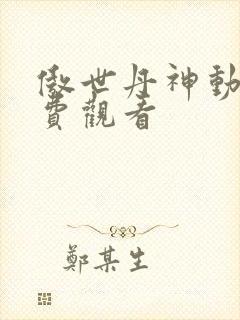 傲世丹神動
費觀看
鄭某生